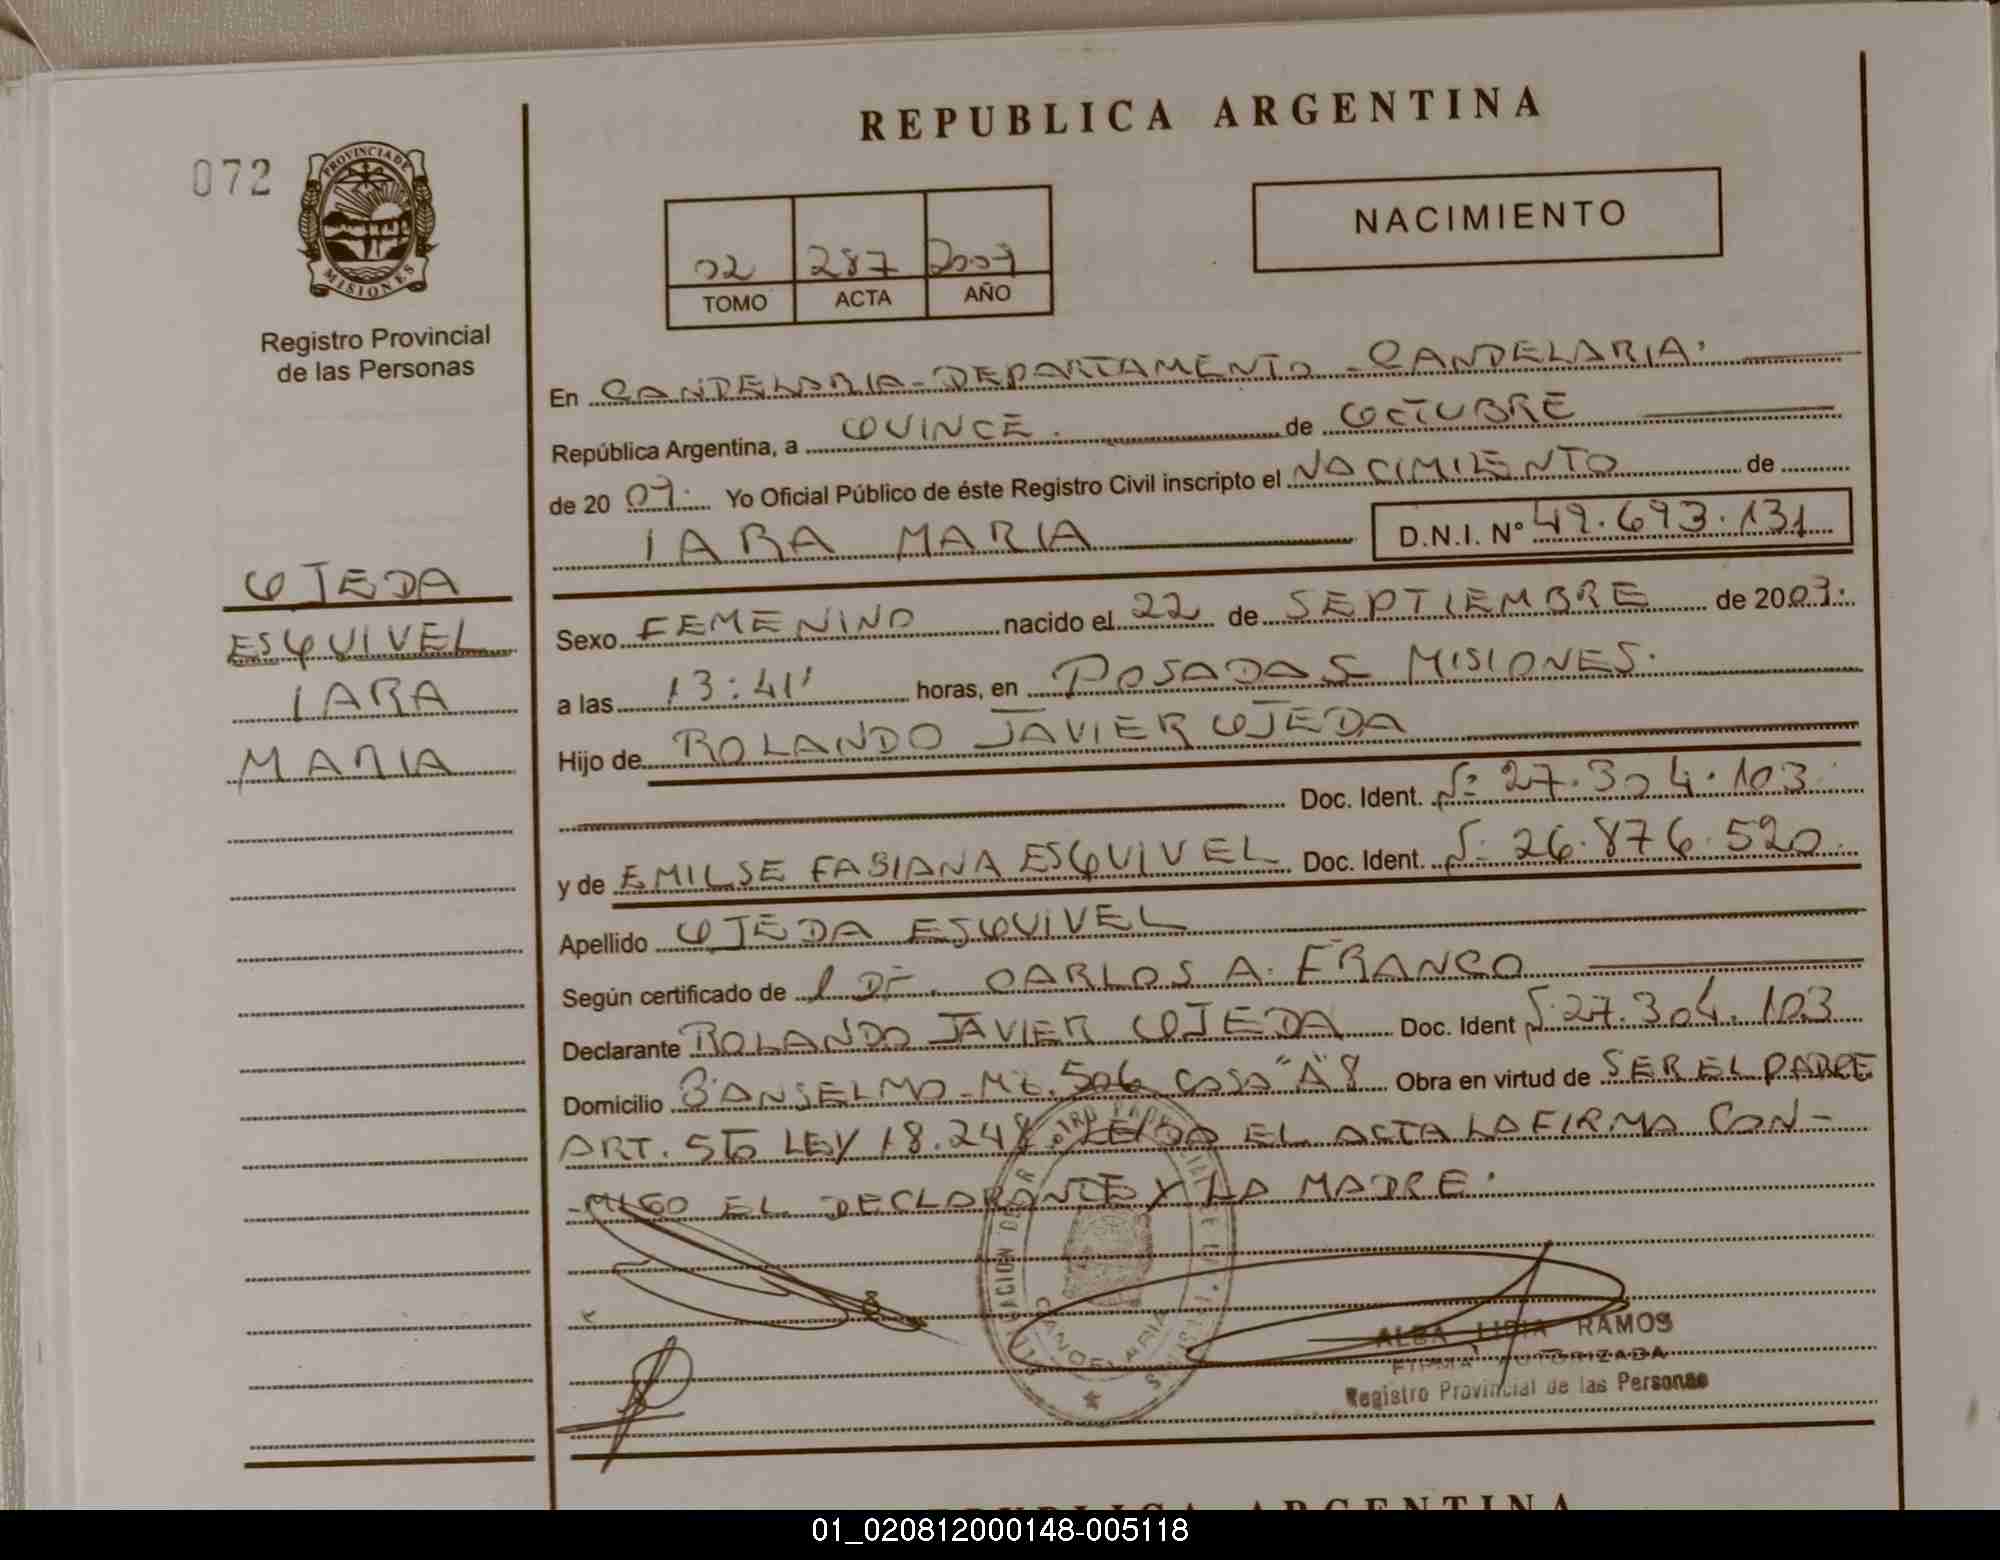 REPUBLICA ARGENTINA
072
PROVINCIA DE
MISIONES
Registro Provincial
de las Personas
NACIMIENTO
02 287 2007
TOMO ACTA AÑO
En CANDELARIA - DEPARTAMENTO - CANDELARIA.
República Argentina, a QUINCE. de OCTUBRE
de 20 07. Yo Oficial Público de éste Registro Civil inscripto el NACIMIENTO de
IARA MARIA D.N.I. Nº 49.693.131
OJEDA
ESQUIVEL
IARA
MARIA
Sexo FEMENINO nacido el 22 de SEPTIEMBRE de 2007.
a las 13:41' horas, en POSADAS MISIONES.
Hijo de ROLANDO JAVIER OJEDA
Doc. Ident. Nº 27.304.103
y de EMILSE FABIANA ESQUIVEL Doc. Ident. Nº 26.876.520.
Apellido OJEDA ESQUIVEL
Según certificado de CARLOS A. FRANCO
Declarante ROLANDO JAVIER OJEDA Doc. Ident Nº 27.304.103
Domicilio Bº ANSELMO - Mz. 506 CASA "A" 8 Obra en virtud de SER EL PADRE
ART. 5to LEY 18.248 LEIDA EL ACTA LA FIRMA CON-
-MIGO EL DECLARANTE Y LA MADRE.
CANDELARIA
ALBA LIDIA RAMOS
FIRMA AUTORIZADA
Registro Provincial de las Personas
REPUBLICA ARGENTINA
01_020812000148-005118